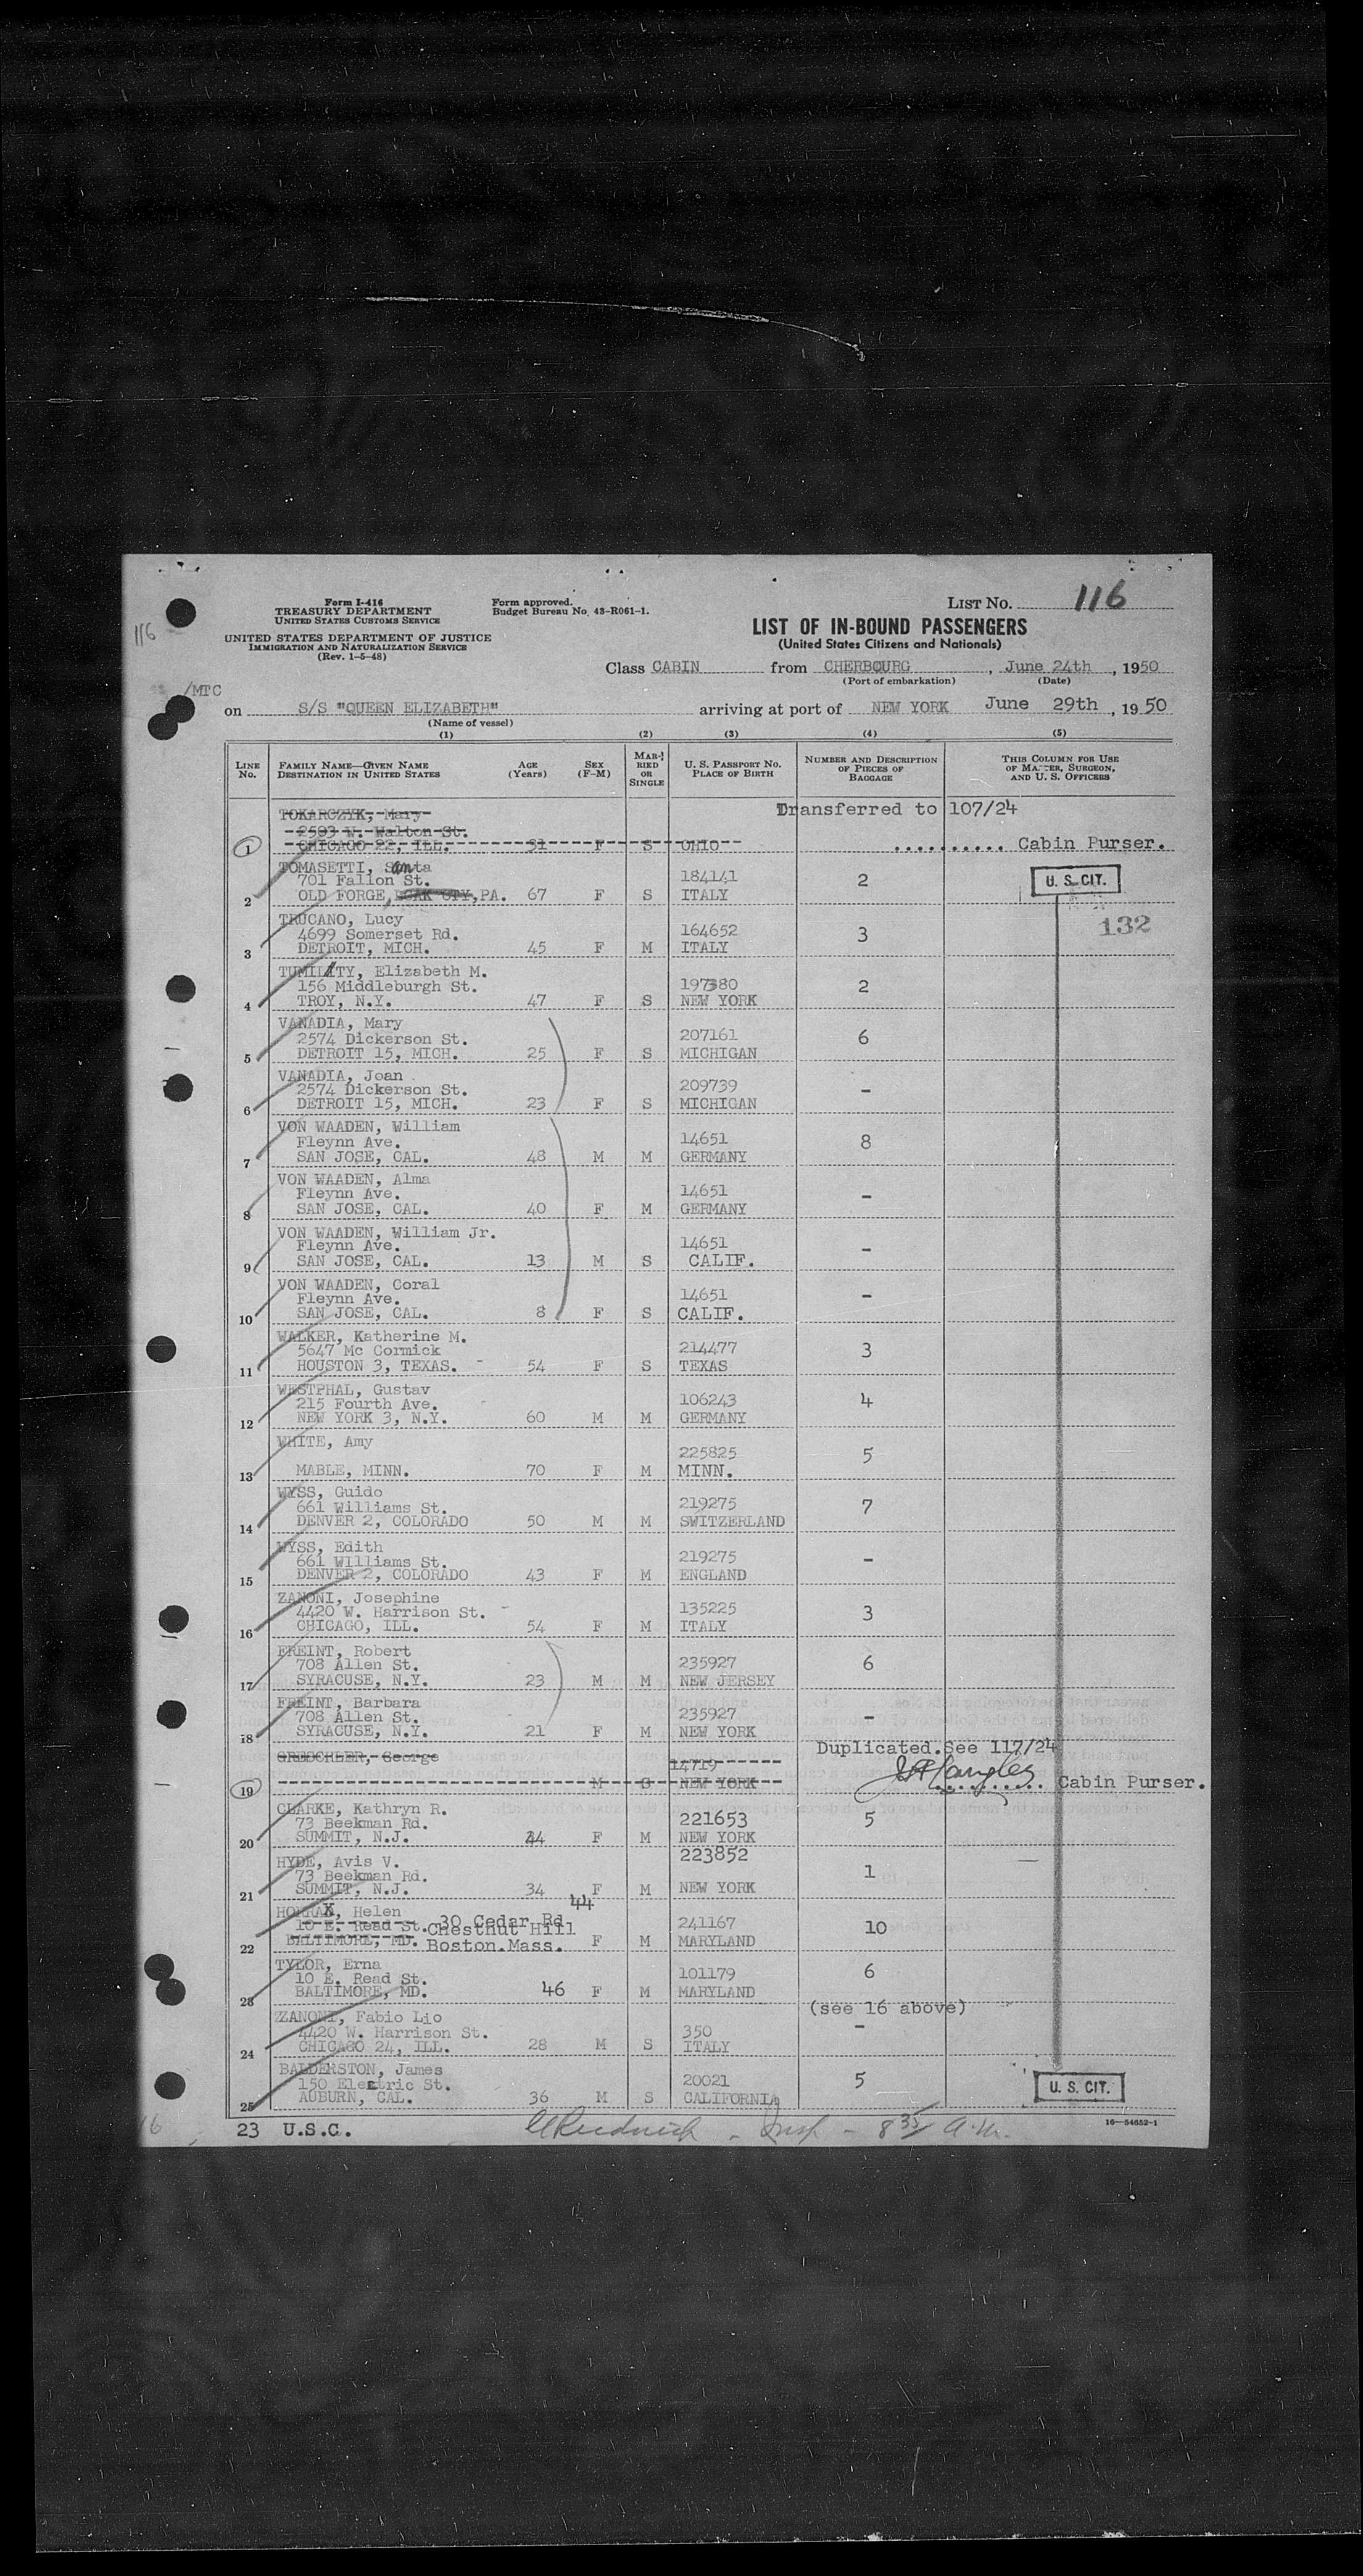 116
Form I-416
TREASURY DEPARTMENT
UNITED STATES CUSTOMS SERVICE
UNITED STATES DEPARTMENT OF JUSTICE
IMMIGRATION AND NATURALIZATION SERVICE
(Rev. 1-5-48)
Form approved.
Budget Bureau No. 43-R061-1.
LIST NO. 116
LIST OF IN-BOUND PASSENGERS
(United States Citizens and Nationals)
Class CABIN from CHERBOURG, June 24th, 1950
(Port of embarkation) (Date)
/MTC
on S/S "QUEEN ELIZABETH" arriving at port of NEW YORK June 29th, 1950
(Name of vessel)
(1) (2) (3) (4) (5)
LINE NO. FAMILY NAME—GIVEN NAME DESTINATION IN UNITED STATES AGE (Years) SEX (F-M) MARRIED OR SINGLE U. S. PASSPORT NO. PLACE OF BIRTH NUMBER AND DESCRIPTION OF PIECES OF BAGGAGE THIS COLUMN FOR USE OF MASTER, SURGEON, AND U. S. OFFICERS
TOKARCZYK, Mary Transferred to 107/24
2503 W. Walton St.
1 CHICAGO 22, ILL. 31 F S OHIO .......... Cabin Purser.
TOMASETTI, Santa
701 Fallon St. 184141 2 U. S. CIT.
2 OLD FORGE, PA. 67 F S ITALY
TRUCANO, Lucy 132
4699 Somerset Rd. 164652 3
3 DETROIT, MICH. 45 F M ITALY
TUMILTY, Elizabeth M.
156 Middleburgh St. 197380 2
4 TROY, N.Y. 47 F S NEW YORK
VANADIA, Mary
2574 Dickerson St. 207161 6
5 DETROIT 15, MICH. 25 F S MICHIGAN
VANADIA, Joan
2574 Dickerson St. 209739 -
6 DETROIT 15, MICH. 23 F S MICHIGAN
VON WAADEN, William
Fleynn Ave. 14651 8
7 SAN JOSE, CAL. 48 M M GERMANY
VON WAADEN, Alma
Fleynn Ave. 14651 -
8 SAN JOSE, CAL. 40 F M GERMANY
VON WAADEN, William Jr.
Fleynn Ave. 14651 -
9 SAN JOSE, CAL. 13 M S CALIF.
VON WAADEN, Coral
Fleynn Ave. 14651 -
10 SAN JOSE, CAL. 8 F S CALIF.
WALKER, Katherine M.
5647 Mc Cormick 214477 3
11 HOUSTON 3, TEXAS. 54 F S TEXAS
WESTPHAL, Gustav
215 Fourth Ave. 106243 4
12 NEW YORK 3, N.Y. 60 M M GERMANY
WHITE, Amy
225825 5
13 MABLE, MINN. 70 F M MINN.
WYSS, Guido
661 Williams St. 219275 7
14 DENVER 2, COLORADO 50 M M SWITZERLAND
WYSS, Edith
661 WIlliams St. 219275 -
15 DENVER 2, COLORADO 43 F M ENGLAND
ZANONI, Josephine
4420 W. Harrison St. 135225 3
16 CHICAGO, ILL. 54 F M ITALY
FREINT, Robert
708 Allen St. 235927 6
17 SYRACUSE, N.Y. 23 M M NEW JERSEY
FREINT, Barbara
708 Allen St. 235927 -
18 SYRACUSE, N.Y. 21 F M NEW YORK
George Duplicated. See 117/24
14719
19 M NEW YORK .......... Cabin Purser.
CLARKE, Kathryn R.
73 Beekman Rd. 221653 5
20 SUMMIT, N.J. 44 F M NEW YORK
HYDE, Avis V. 223852
73 Beekman Rd. 1
21 SUMMIT, N.J. 34 F M NEW YORK
HORRAX, Helen 44
10 E. Read St. 30 Cedar Rd 241167 10
Chestnut Hill
22 BALTIMORE, MD. Boston.Mass. F M MARYLAND
TYLOR, Erna
10 E. Read St. 101179 6
23 BALTIMORE, MD. 46 F M MARYLAND
ZANONI, Fabio Lio (see 16 above)
4420 W. Harrison St. 350 -
24 CHICAGO 24, ILL. 28 M S ITALY
BALDERSTON, James
150 Electric St. 20021 5 U. S. CIT.
25 AUBURN, CAL. 36 M S CALIFORNIA
23 U.S.C. Insp - 8 35 a.m. 16—54652-1